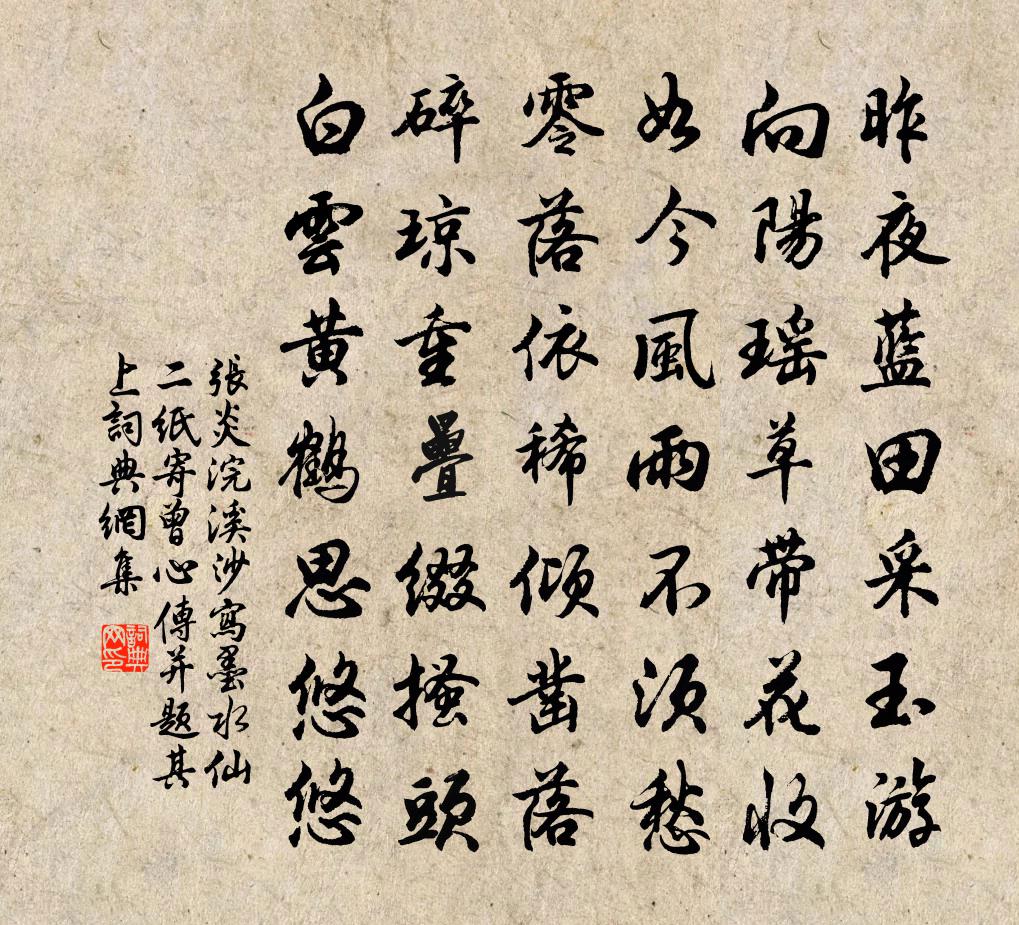 昨夜藍田采玉游
向陽瑶草带花收
如今風雨不須愁
零落依稀傾鑿落
碎琼重疊綴搔頭
白雲黄鶴思悠悠
張炎浣溪沙寫墨水仙
二紙寄曾心傳并題其
上詞典網集
詞典
网印